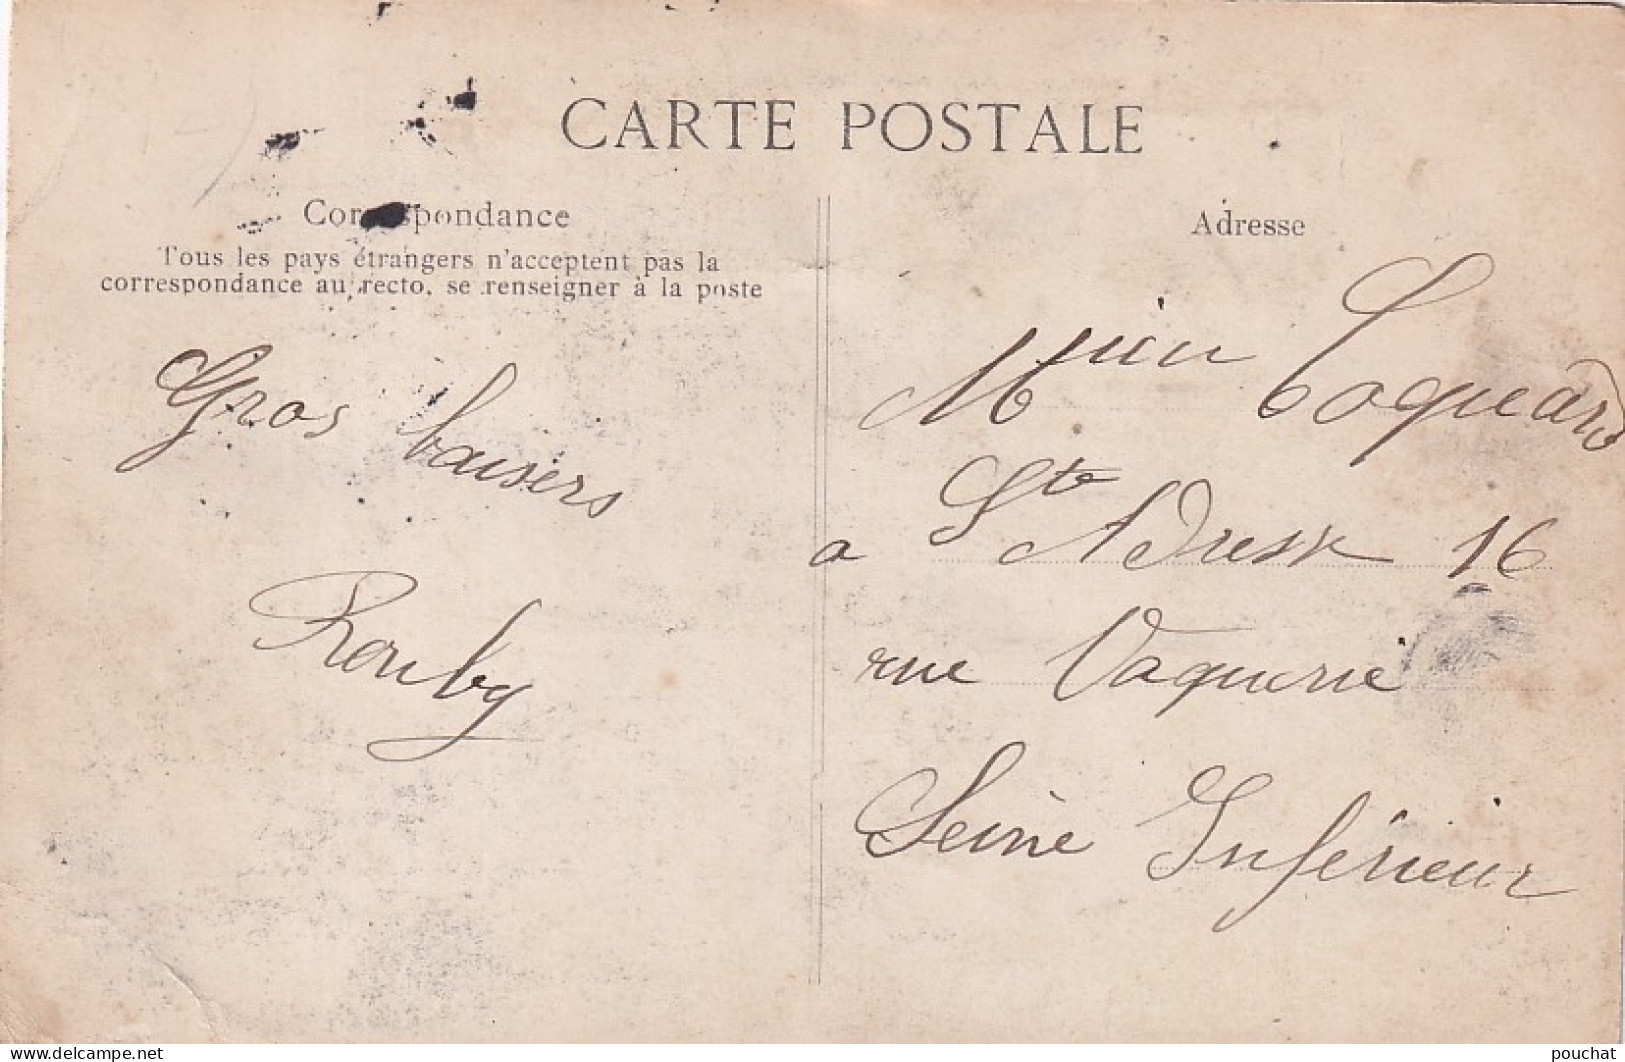 CARTE POSTALE
Correspondance
Tous les pays étrangers n'acceptent pas la
correspondance au recto. se renseigner à la poste
Gros baisers
Rouby
Adresse
Coquard
a Ste Adresse 16
rue Vaquerie
Seine Inférieur
delcampe.net
pouchat